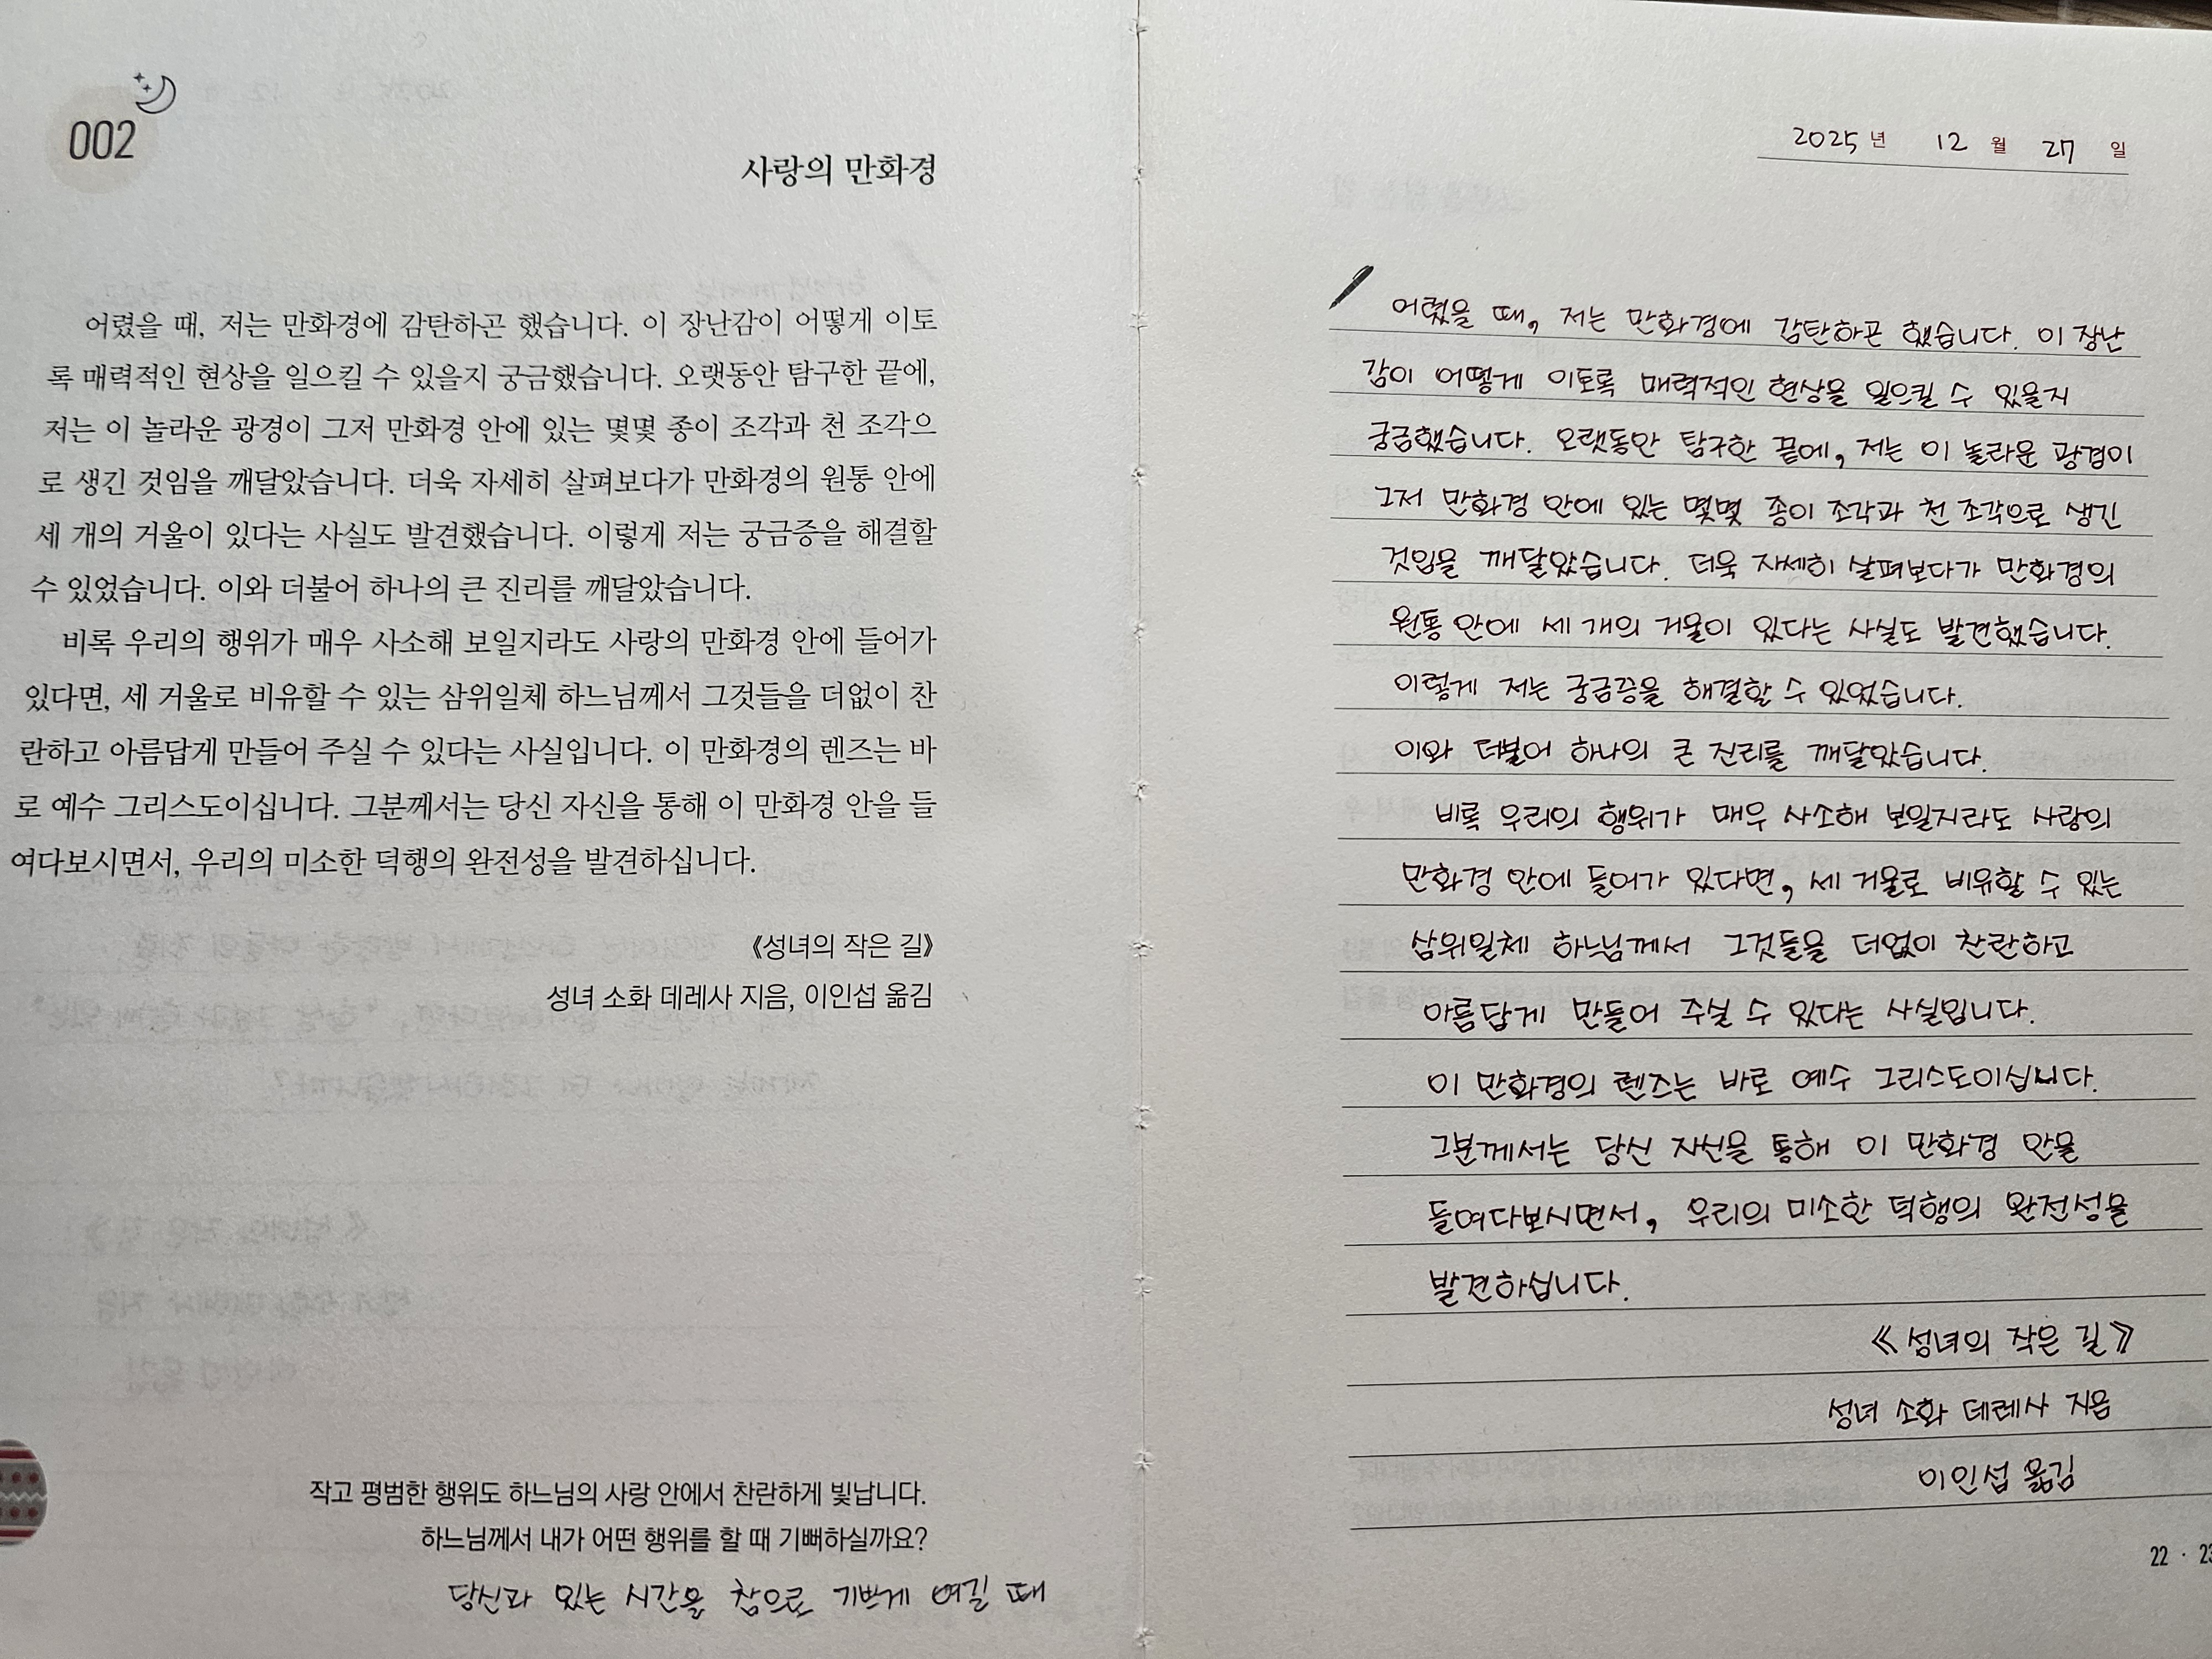 002
사랑의 만화경
어렸을 때, 저는 만화경에 감탄하곤 했습니다. 이 장난감이 어떻게 이토
록 매력적인 현상을 일으킬 수 있을지 궁금했습니다. 오랫동안 탐구한 끝에,
저는 이 놀라운 광경이 그저 만화경 안에 있는 몇몇 종이 조각과 천 조각으
로 생긴 것임을 깨달았습니다. 더욱 자세히 살펴보다가 만화경의 원통 안에
세 개의 거울이 있다는 사실도 발견했습니다. 이렇게 저는 궁금증을 해결할
수 있었습니다. 이와 더불어 하나의 큰 진리를 깨달았습니다.
비록 우리의 행위가 매우 사소해 보일지라도 사랑의 만화경 안에 들어가
있다면, 세 거울로 비유할 수 있는 삼위일체 하느님께서 그것들을 더없이 찬
란하고 아름답게 만들어 주실 수 있다는 사실입니다. 이 만화경의 렌즈는 바
로 예수 그리스도이십니다. 그분께서는 당신 자신을 통해 이 만화경 안을 들
여다보시면서, 우리의 미소한 덕행의 완전성을 발견하십니다.
《성녀의 작은 길》
성녀 소화 데레사 지음, 이인섭 옮김
작고 평범한 행위도 하느님의 사랑 안에서 찬란하게 빛납니다.
하느님께서 내가 어떤 행위를 할 때 기뻐하실까요?
당신과 있는 시간을 참으로 기쁘게 여길 때
2025년 12월 27일
어렸을 때, 저는 만화경에 감탄하곤 했습니다. 이 장난
감이 어떻게 이토록 매력적인 현상을 일으킬 수 있을지
궁금했습니다. 오랫동안 탐구한 끝에, 저는 이 놀라운 광경이
그저 만화경 안에 있는 몇몇 종이 조각과 천 조각으로 생긴
것임을 깨달았습니다. 더욱 자세히 살펴보다가 만화경의
원통 안에 세 개의 거울이 있다는 사실도 발견했습니다.
이렇게 저는 궁금증을 해결할 수 있었습니다.
이와 더불어 하나의 큰 진리를 깨달았습니다.
비록 우리의 행위가 매우 사소해 보일지라도 사랑의
만화경 안에 들어가 있다면, 세 거울로 비유할 수 있는
삼위일체 하느님께서 그것들을 더없이 찬란하고
아름답게 만들어 주실 수 있다는 사실입니다.
이 만화경의 렌즈는 바로 예수 그리스도이십니다.
그분께서는 당신 자신을 통해 이 만화경 안을
들여다보시면서, 우리의 미소한 덕행의 완전성을
발견하십니다.
《성녀의 작은 길》
성녀 소화 데레사 지음
이인섭 옮김
22 · 23